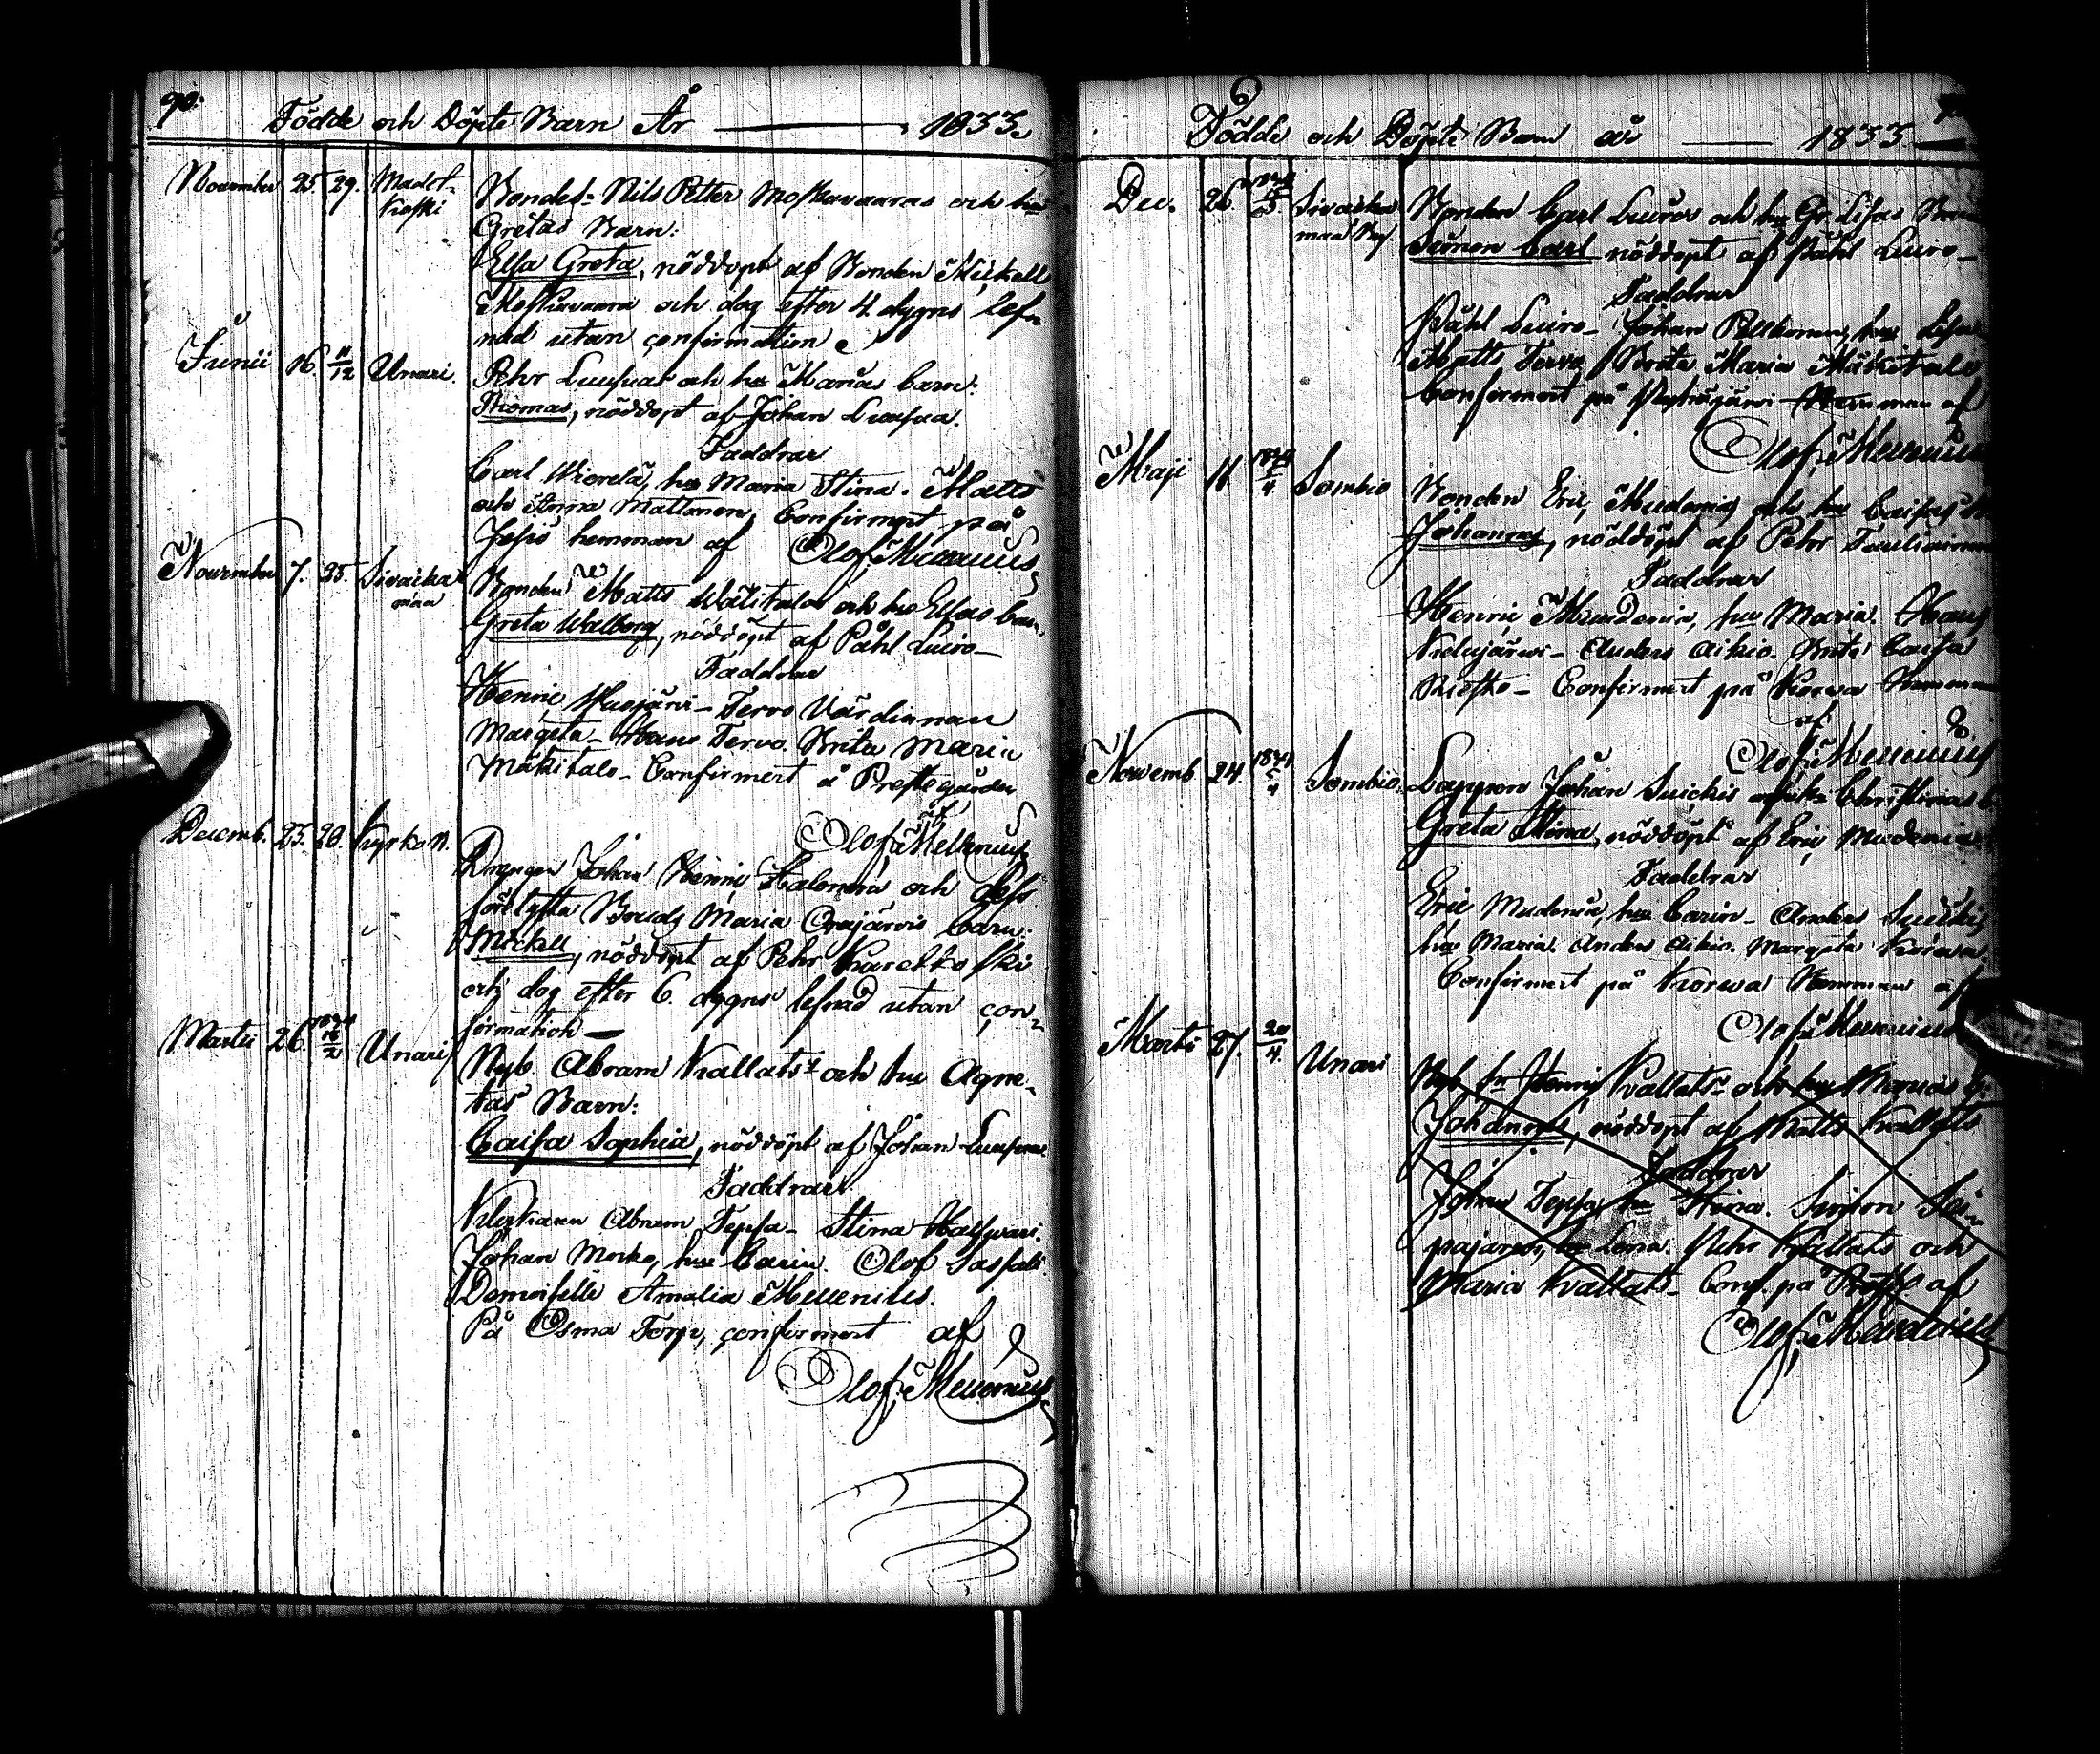 90.
Födde och Döpte Barn År 1833.
November 25. 29. Madet-
koski
Bonden Nils Petter Moskuvaaras och hu
Gretas Barn:
Elsa Greta, nöddöpt af Bonden Mickell
Moskuvaara och dog efter 4 dygns lef-
nad utan confirmation
Junii 16. 11/12 Unari.
Pehr Luusuas och hu Marias barn:
Thomas, nöddöpt af Johan Luusua.
Faddrar
Carl Wiorelä, hu Maria Stina. Matts
och Anna Mattonen, Confirmert på
hemman af Olof Mellenius
November 7. 25. Sivacka
maa
Bonden Matts Wälitalos och hu Elsas barn
Greta Walborg, nöddöpt af Påhl Luiro
Faddrar
Henric Tervo Värdinnan
Margeta Hans Tervo. Brita Maria
Mäkitalo Confirmert å Prestegården
af
Olof Mellenius
Decemb. 25. 28. Kyrko B.
Drengen Johan Henric Halonens och dess
förelyfta Maria Orajärvis barn:
Mickell, nöddöpt af Pehr Kurelkoski
och dog efter 6. dygns lefnad utan con-
firmation
Martii 26. 1834 16/2 Unari
Nyb. Abram Kallats och hu Agne-
tas Barn:
Caisa Sophia, nöddöpt af Johan Luusua.
Faddrar
Klockaren Abram Tepsa Stina
Johan Morko, hu Carin. Olof Saspeli.
Demoiselle Amalia Mellenius.
På Osma Torp, confirmert af
Olof Mellenius
Födde och Döpte Barn år 1833.
Dec. 26. 1834 Sivacka
maa
Bonden Carl Luiros och hu Gr. Lisas Barn
Simon Carl nöddöpt af Påhl Luiro
Faddrar
Påhl Luiro Johan Pelkonen, hu Lisa
Matts Tervo, Brita Maria Mäkitalo
Confirmert på Hemman af
Olof Mellenius
Maji 11 1834 Sombio
Bonden Eric Mudenias och hu Caisas
Johannes, nöddöpt af Pehr
Faddrar
Henric Mudenia, hu Maria. Hans
Kelujärvi Anders Aikio. Brita Caisa
Riesto Confirmert på Korwa Hemman
af
Olof Mellenius
Novemb. 24. 1834 Sombio.
Lappen Johan Suickis och hu Christinas b
Greta Stina nöddöpt af Eric Mudenia
Faddrar
Eric Mudenia, hu Carin Anders Suicki
hu Maria. Anders Aikio. Margeta Korwa.
Confirmert på Korwa Hemman af
Olof Mellenius
Martii 27. 20/4. Unari
Nyb. Henric Kallats och hu Marias
Johannes, nöddöpt af Matts Kallats
Faddrar
Johan Tepsa, hu Stina. Simon Sei-
pajärvi, hu Lena. Pehr Kallats och
Maria Kallats Conf. på Prestg af
Olof Mellenius